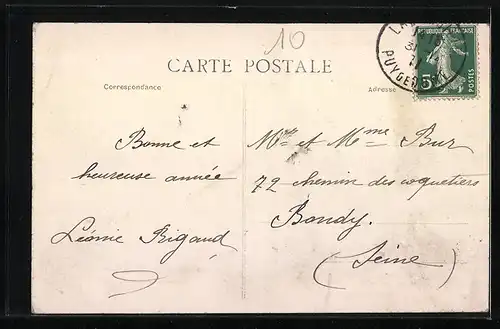 10
CARTE POSTALE
Correspondance
Adresse
REPUBLIQUE FRANÇAISE
5c
POSTES
Bonne et
heureuse année
Léonie Rigaud
Mr et Mme Bur
72 chemin des coquetiers
Bondy.
(Seine)